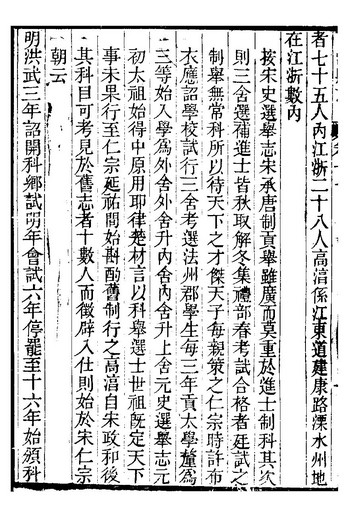 者七十五人內江浙二十八人高淳係江東道建康路溧水州地
在江浙數內
按宋史選舉志宋承唐制貢舉雖廣而莫重於進士制科其次
則三舍選補進士皆秋取解冬集禮部春考試合格者廷試之
制舉無常科所以待天下之才傑天子每親策之仁宗時許布
衣應詔學校試行三舍考選法州郡學生每三年貢太學釐為
三等始入學為外舍外舍升內舍內舍升上舍元史選舉志元
初太祖始得中原用耶律楚材言以科舉選士世祖旣定天下
事未果行至仁宗延祐間始斟酌舊制行之高淳自宋政和後
其科目可考見於舊志者十數人而徵辟入仕則始於宋仁宗
朝云
明洪武三年詔開科鄉試明年會試六年停罷至十六年始頒科